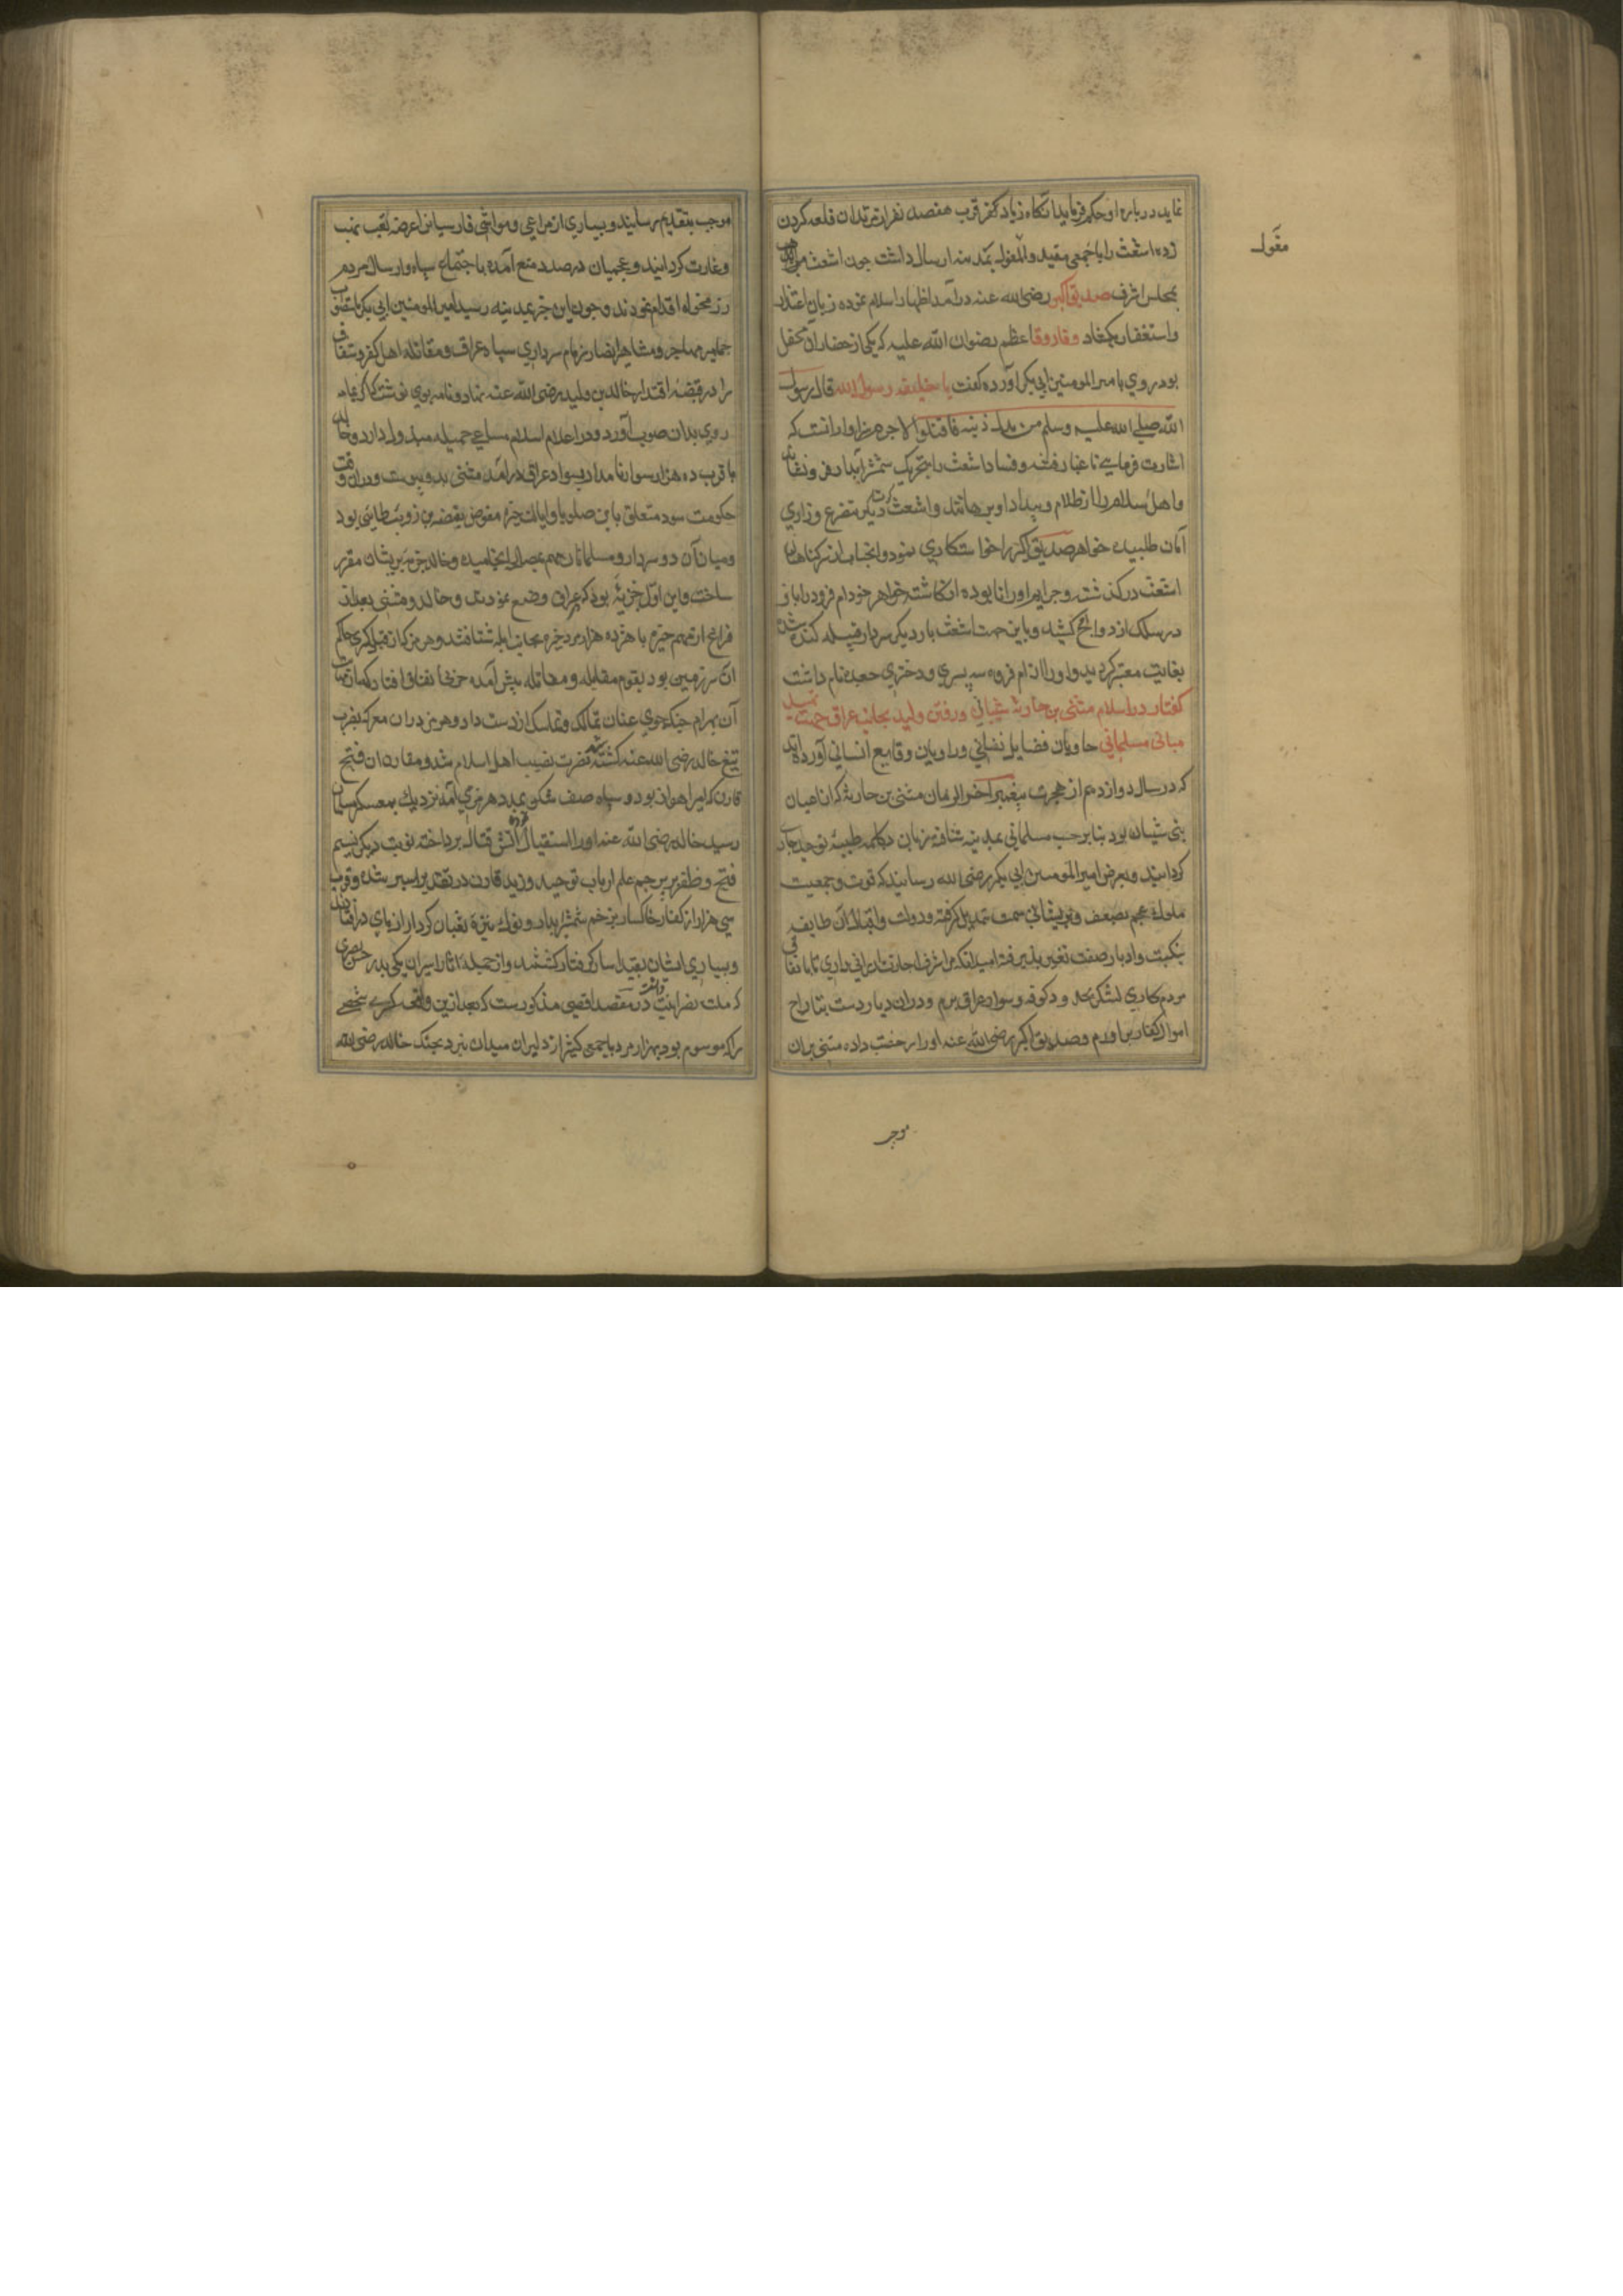 نماید درباره او حکم فرماید آنگاه زیاد کفر قرب هفتصد نفر از مرتدان قلعه کردن
زده اشعث را با جمعی مقید و مغلول بمدینه ارسال داشت چون اشعث
بمجلس اشرف صدیق اکبر رضی الله عنه درآمد اظهار اسلام نموده زبان اعتذار
واستغفار بگشاد و فاروق اعظم رضوان الله علیه که یکی از حضار آن محفل
بود روی بامیر المومنین ابی بکر آورده گفت یا خلیفه رسول الله قال رسول
الله صلی الله علیه وسلم من بدل دینه فاقتلوا لاجرم سزاوار انست که
اشارت فرمایی تا غبار فتنه و فساد اشعث را بتحریک شمشیر آبدار فرو نشانند
واهل اسلام را از ظلام و بیداد او برهانند و اشعث کرت دیگر متضرع وزاری
امان طلبیده خواهر صدیق اکبر را خواستکاری نمود وانجناب از سر کناهان
اشعث درگذشت وجرایم او را نابوده انکاشته خواهر خود ام فروه را با او
در سلک ازدواج کشید و باین جهت اشعث بار دیگر سردار قبیله کنده شده
بغایت معتبر کردید واو را از ام فروه سه پسر و دختری جعده نام داشت
کفتار در اسلام مثنی بن حارثه شیبانی ورفتن ولید بجانب عراق جهت تمهید
مبانی مسلمانی حاویان فضایل نفسانی وراویان وقایع انسانی آورده‌اند
که در سال دوازدهم از هجرت پیغمبر آخر الزمان مثنی بن حارثه که از اعیان
بنی شیبان بود بنابر حب مسلمانی بمدینه شتافته زبان بکلمه طیبه توحید جاری
کردانید وبعرض امیر المومنین ابی بکر رضی الله رسانید که قوت وجمعیت
ملوک عجم بضعف و پریشانی سمت تبدیل کرفته ودولت واقبال آن طایفه
بنکبت وادبار صفت تغییر پذیرفته امید انکه مرا شرف اجازت ارزانی داری تا باتفاق
مردم کاری لشکر بحد و دکوفه وسواد عراق برم ودران دیار دست بتاراج
اموال کفار براورم وصدیق اکبر رضی الله عنه اورا رخصت داده مثنی بران
موجب
مقول
موجب بتقدیم رسانید و بسیاری از مراعی ومواشی فارسیانرا عرضه نهب
وغارت کردانید و عجمیان در صدد منع آمده باجتماع سپاه وارسال مردم
رزمخواه اقدام نمودند وچون این خبر بمدینه رسید امیر المومنین ابی بکر باستصواب
جماهیر مهاجر ومشاهیر انصار زمام سرداری سپاه عراق و مقاتله اهل کفر وشقاق
را در قبضه اقتدار خالد بن ولید رضی الله عنه نهاد ونامه بوی نوشت که از یمامه
روی بدان صوب آورد ودر اعلام اسلام مساعی جمیله مبذول دارد وخالد
با قرب ده هزار سوار نامدار بسواد عراق درآمد مثنی بدو پیوست ودران وقت
حکومت سود متعلق بابن صلوبا وایالت حیره مفوض بقبضه بن زویب طایی بود
ومیان آن دو سردار ومسلمانان مهم بصلح انجامیده وخالد جزیه بریشان مقرر
ساخت واین اول جزیه بود که عراق وضع نمودند وخالد و مثنی بعد از
فراغ از مهم حیره با هژده هزار مرد بجانب ابله شتافتند وهرمز که از قبل کسری حاکم
ان سرزمین بود بقدم مقابله و مقاتله پیش آمده
آن بهرام جنک جوی عنان تمالک وتماسک از دست داد وهرمز دران معرکه بضرب
تیغ خالد رضی الله عنه کشته شد ونصرت نصیب اهل اسلام شد ومقارن ان فتح
قارن که امیر اهواز بود و سپاه صف شکن بمدد هرمز می آمد نزدیک بمعسکر مسلمانان
رسید خالد رضی الله عنه او را استقبال نموده آتش قتال برداخته نوبت دیگر نسیم
فتح و ظفر بر پرچم علم ارباب توحید وزید قارن در بقتل اسیر شده وقرب
سی هزار از کفار خاکسار بزخم شمشیر ابدار ونوک نیزه ثعبان کردار از پای درافتادند
وبسیاری ایشان بقید اسار گرفتار گشتند واز جمله اسیران یکی پدر حسن بصری
که ملت نصرانیت داشت در مقصد اقصی مذکورست که بعد ازین واقعه کسری شخصی
را که موسوم بود بهزار مرد با جمعی کثیر از دلیران میدان نبرد بجنک خالد رضی الله